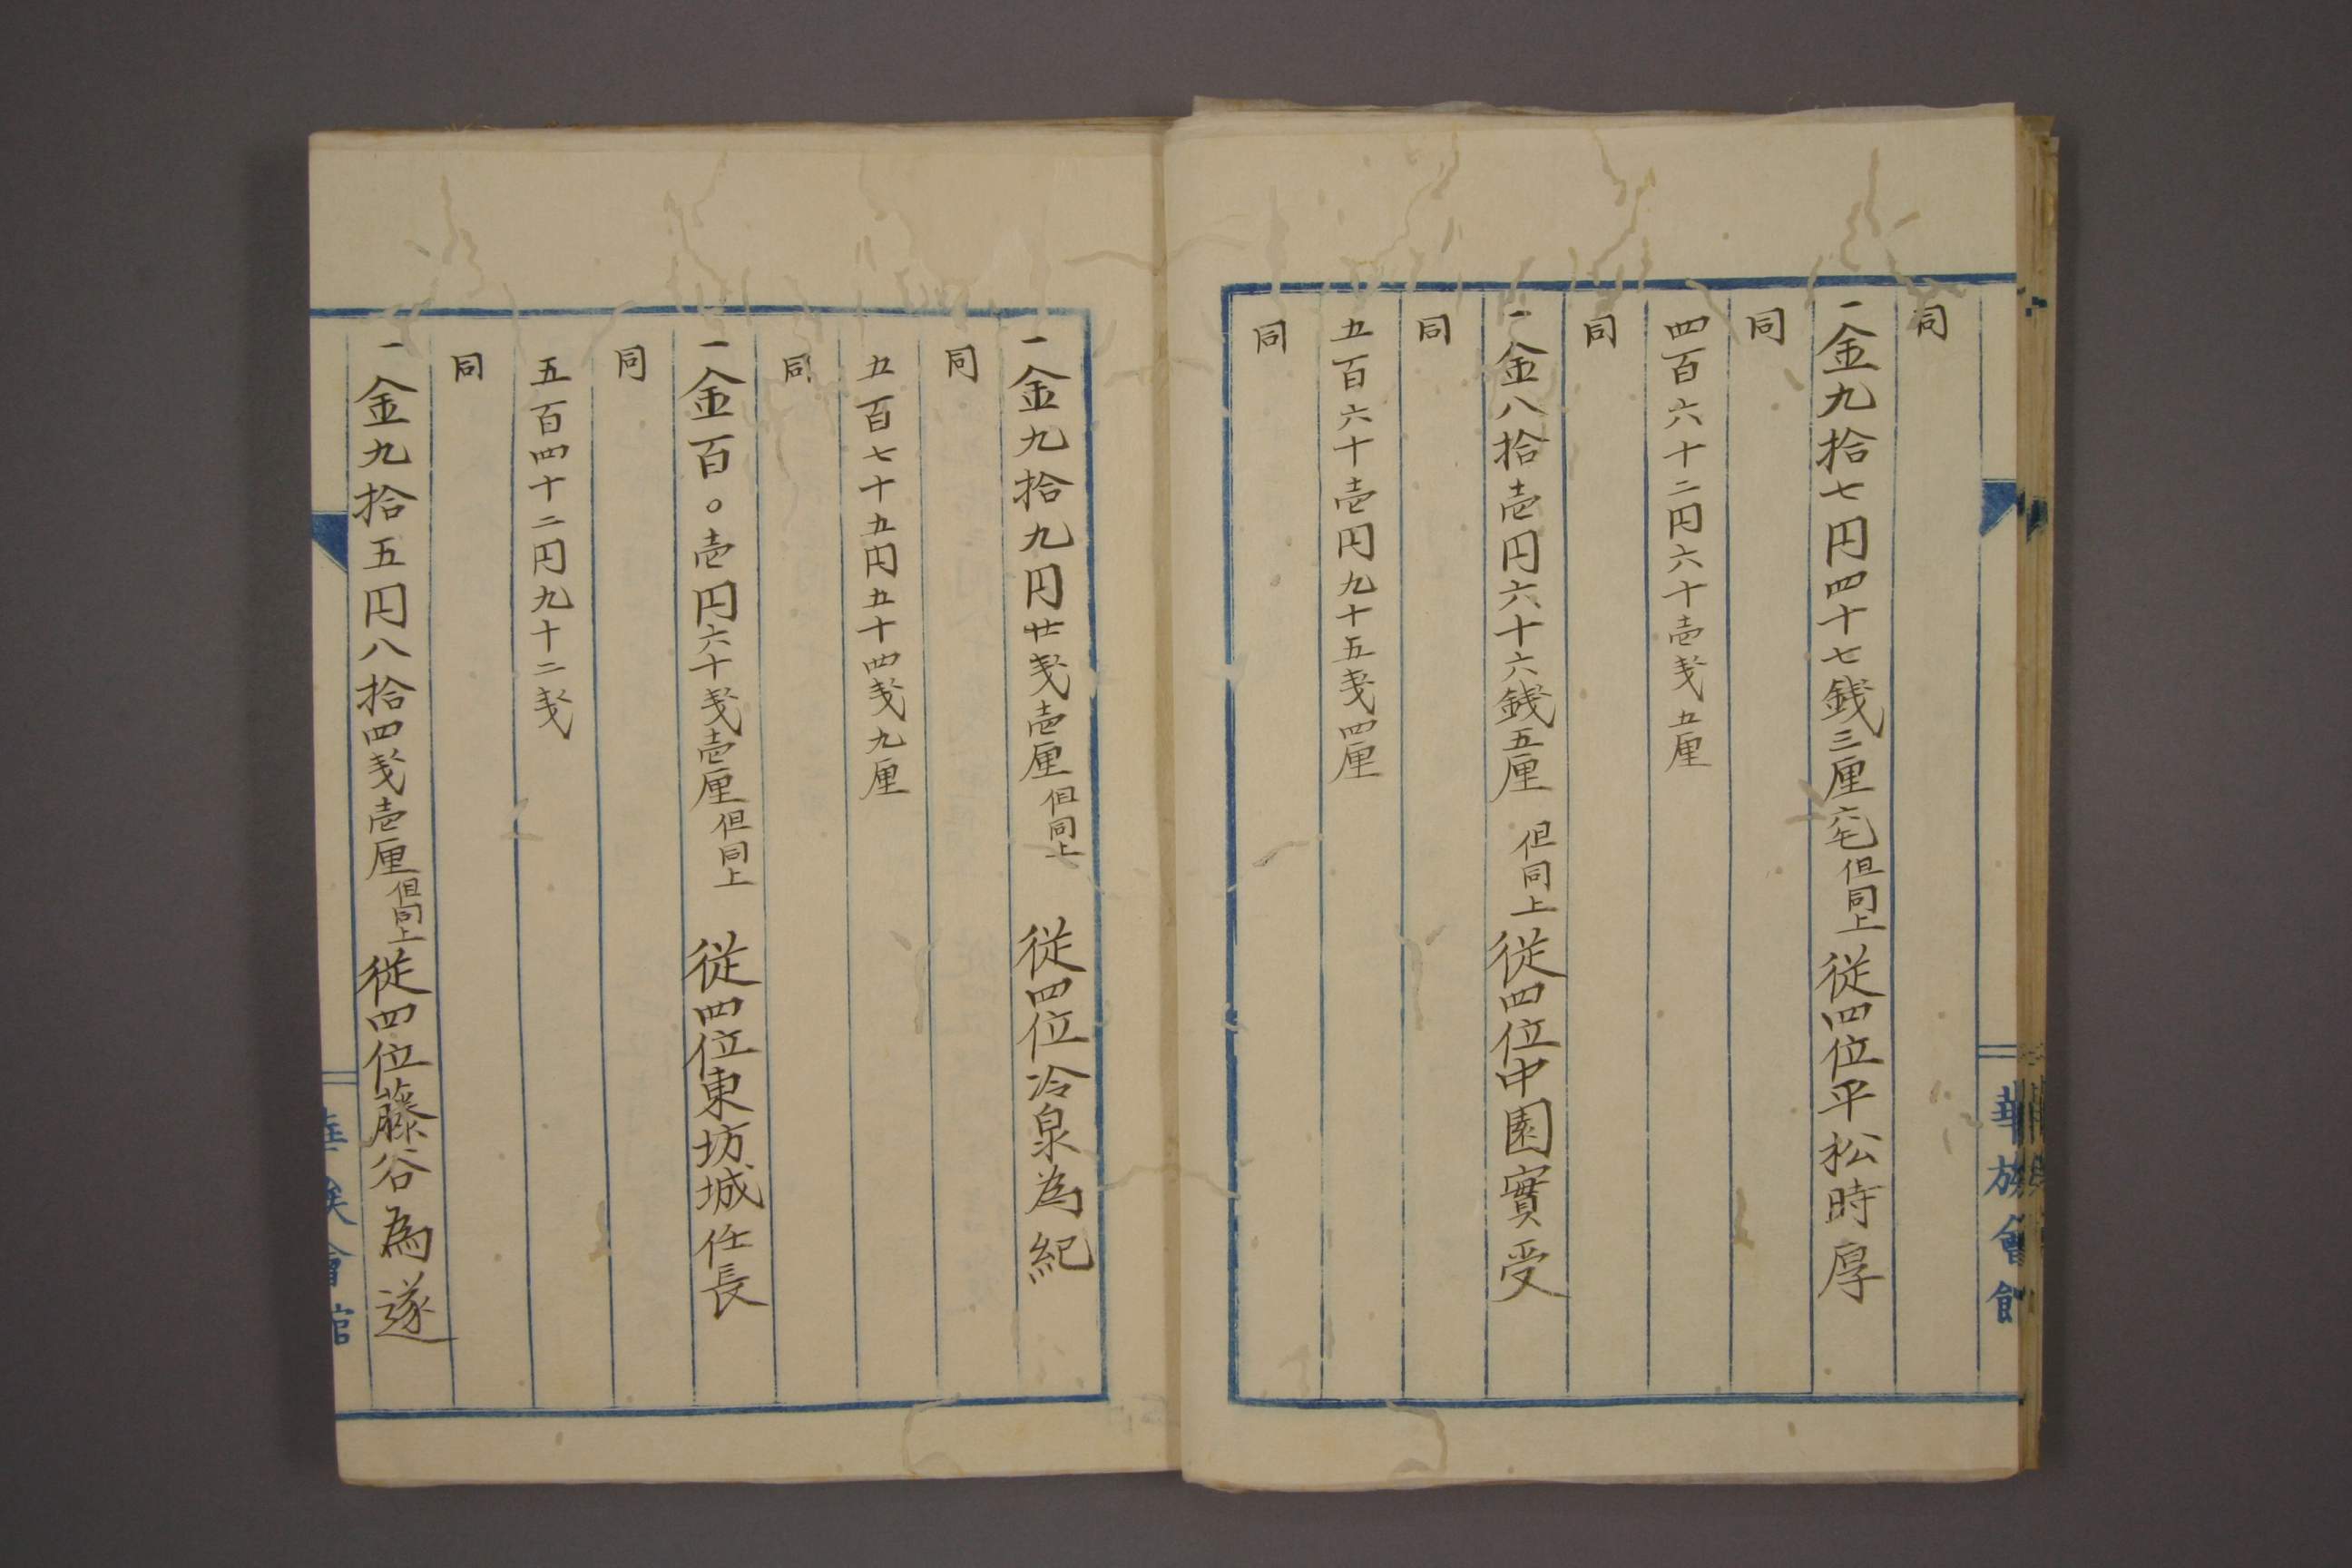 同
一金九拾七円四十七銭三厘六毛但同上従四位平松時厚
同
四百六十二円六十壱戋五厘
同
一金八拾壱円六十六銭五厘但同上従四位中園實受
同
五百六十壱円九十五戋四厘
同
華族會館
一金九拾九円廿戋壱厘但同上 従四位冷泉為紀
同
五百七十五円五十四戋九厘
同
一金百。壱円六十戋壱厘但同上 従四位東坊城任長
同
五百四十二円九十二戋
同
一金九拾五円八拾四戋壱厘但同上従四位藤谷為遂
華族會館